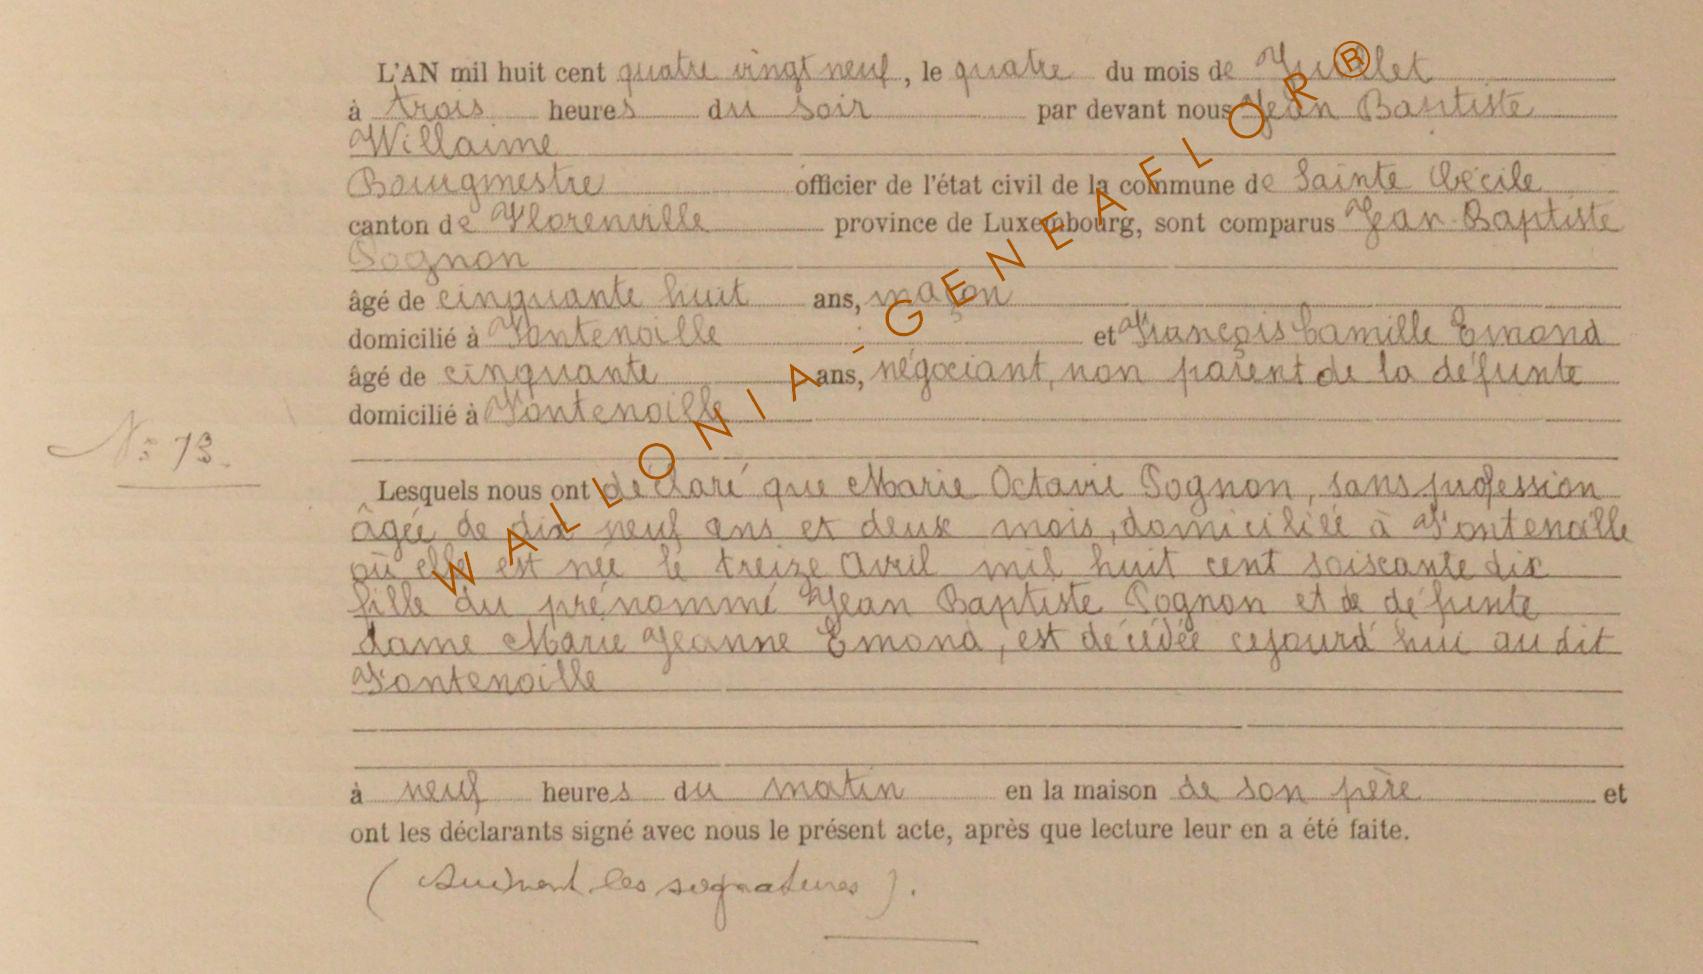 L'AN mil huit cent quatre vingt neuf, le quatre du mois de Juillet
à trois heures du soir par devant nous Jean Baptiste
Willaime
Bourgmestre officier de l'état civil de la commune de Sainte Cécile
canton de Florenville province de Luxembourg, sont comparus Jean Baptiste
Pognon
âgé de cinquante huit ans, maçon
domicilié à Fontenoille et François Camille Emond
âgé de cinquante ans, négociant, non parent de la défunte
domicilié à Fontenoille
N° 13.
Lesquels nous ont déclaré que Marie Octavie Pognon, sans profession
âgée de dix neuf ans et deux mois, domiciliée à Fontenoille
où elle est née le treize Avril mil huit cent soixante dix
fille du prénommé Jean Baptiste Pognon et de défunte
dame Marie Jeanne Emond, est décédée cejourd'hui au dit
Fontenoille
à neuf heures du matin en la maison de son père et
ont les déclarants signé avec nous le présent acte, après que lecture leur en a été faite.
(Suivent les signatures).
WALLONIA-GENEAFLOR®